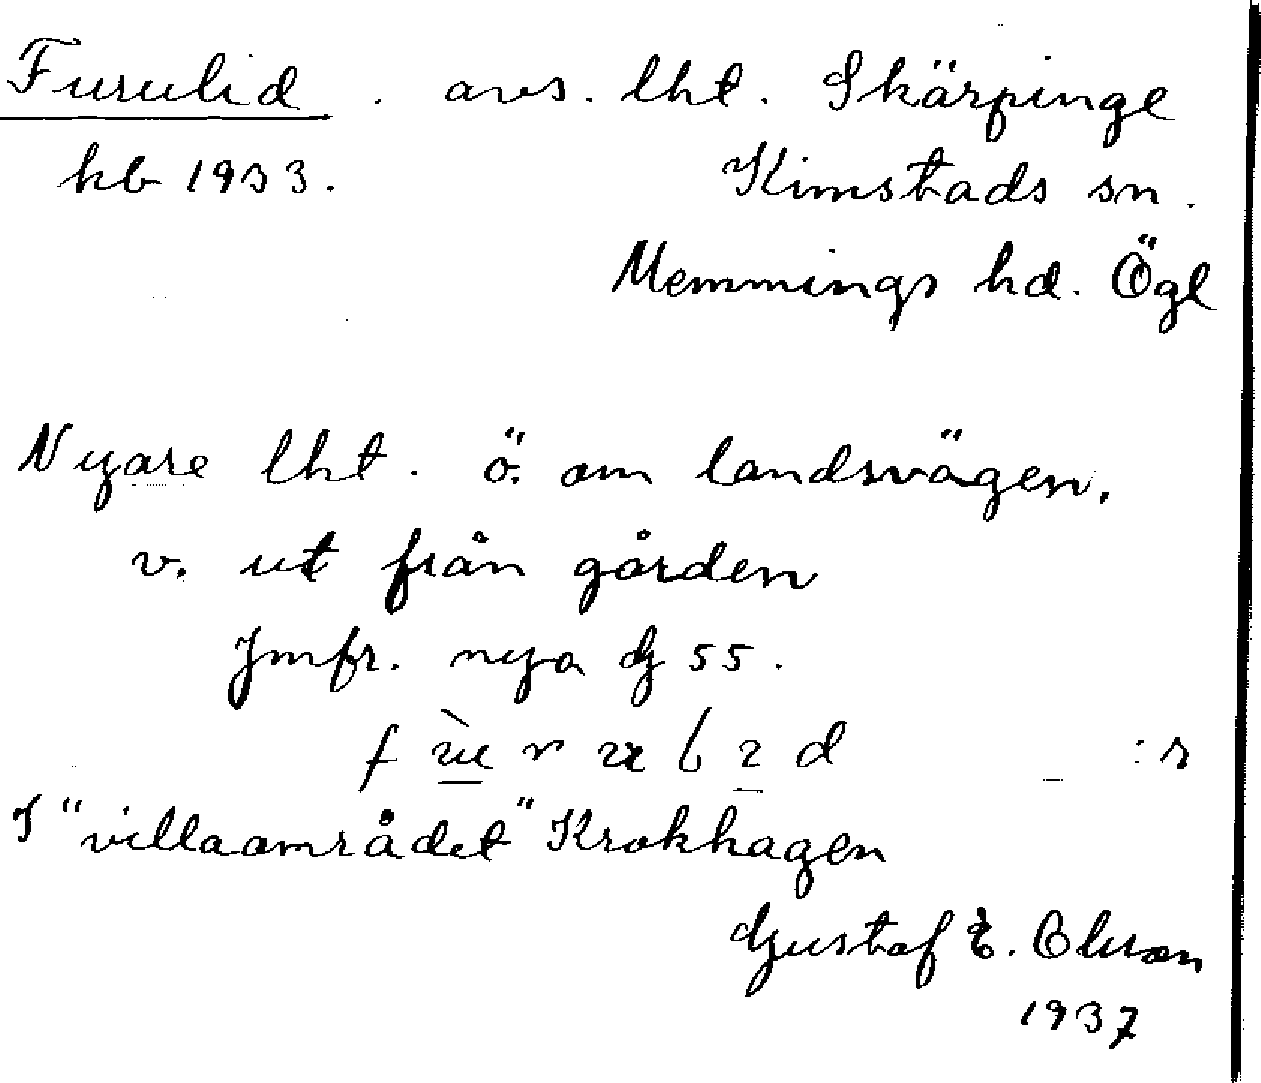 Furulid . avs. lht. Skärpinge
kb 1933. Kimstads sn.
Memmings hd. Ögl
Nyare lht. ö. om landsvägen,
v. ut från gården
Jmfr. nya G 55.
:r
I "villaområdet" Krokhagen
Gustaf E. Olsson
1937